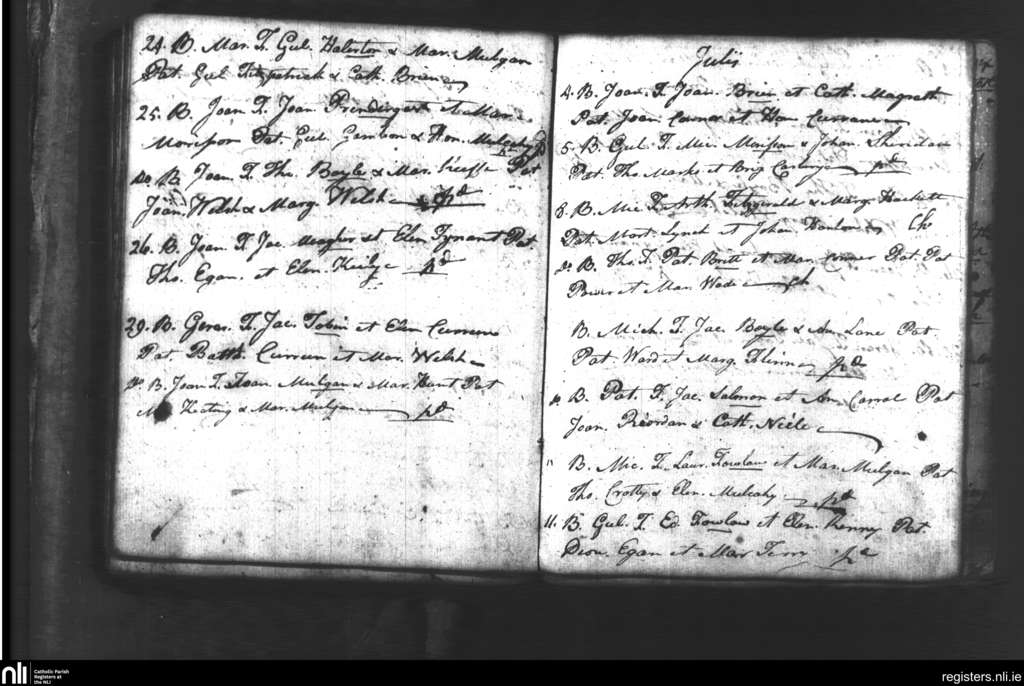 24. B. Mar. F. Gul. Halerton & Mar. Mulgan
Pat. Gul Fitzpatrick & Cath. Brien
25. B. Joan F. Joan Prendirgast et Mar.
Morison Pat. Gul. & Hon. Mulcahy
do. B. Joan. F. Tho. Boyle & Mar. Keeffe Pat
Joan. Welsh & Marg. Welsh pd
26. B. Joan. F. Jac. Meagher et Elen Tynant Pat
Tho. Egan. et Elen. pd
29. B. Gerar. F. Jac. Tobin et Elen Curreen
Pat. Batth. Curreen et Mar. Welsh
do B. Joan F. Joan Mulgan & Mar. Hunt Pat
Keating & Mar. Mulgan pd
Julii
4. B. Joan. F. Joan. Brien et Cath. Magrath
Pat. Joan. et Hon
5. B. Gul F. Mic. Morison & Johan. Sheridan
Pat. Tho. Marks et Brig. pd
8. B. Mic. F. Arth. Fitzgerald & Marg. Hackett
Pat. Mort. Lynch et Johan. Hanlon
do B. Tho. F. Pat. Britt et Mar. Conner Pat. Pat
Power et Mar. Wade
B. Mich. F. Jac. Boyle & An. Lane Pat
Pat. Ward et Marg. Flinn pd
B. Pat. F. Jac. Salmon et An. Carral Pat
Joan. Reordan & Cath. Neéle
B. Mic. F. Laur. Fowlow et Mar. Mulgan Pat
Tho. Crotty & Elen. Mulcahy pd
11. B. Gul. F. Ed. Fowlow et Elen. Kenny Pat.
Dion. Egan et Mar Terry pd
nli Catholic Parish
Registers at
the NLI
registers.nli.ie